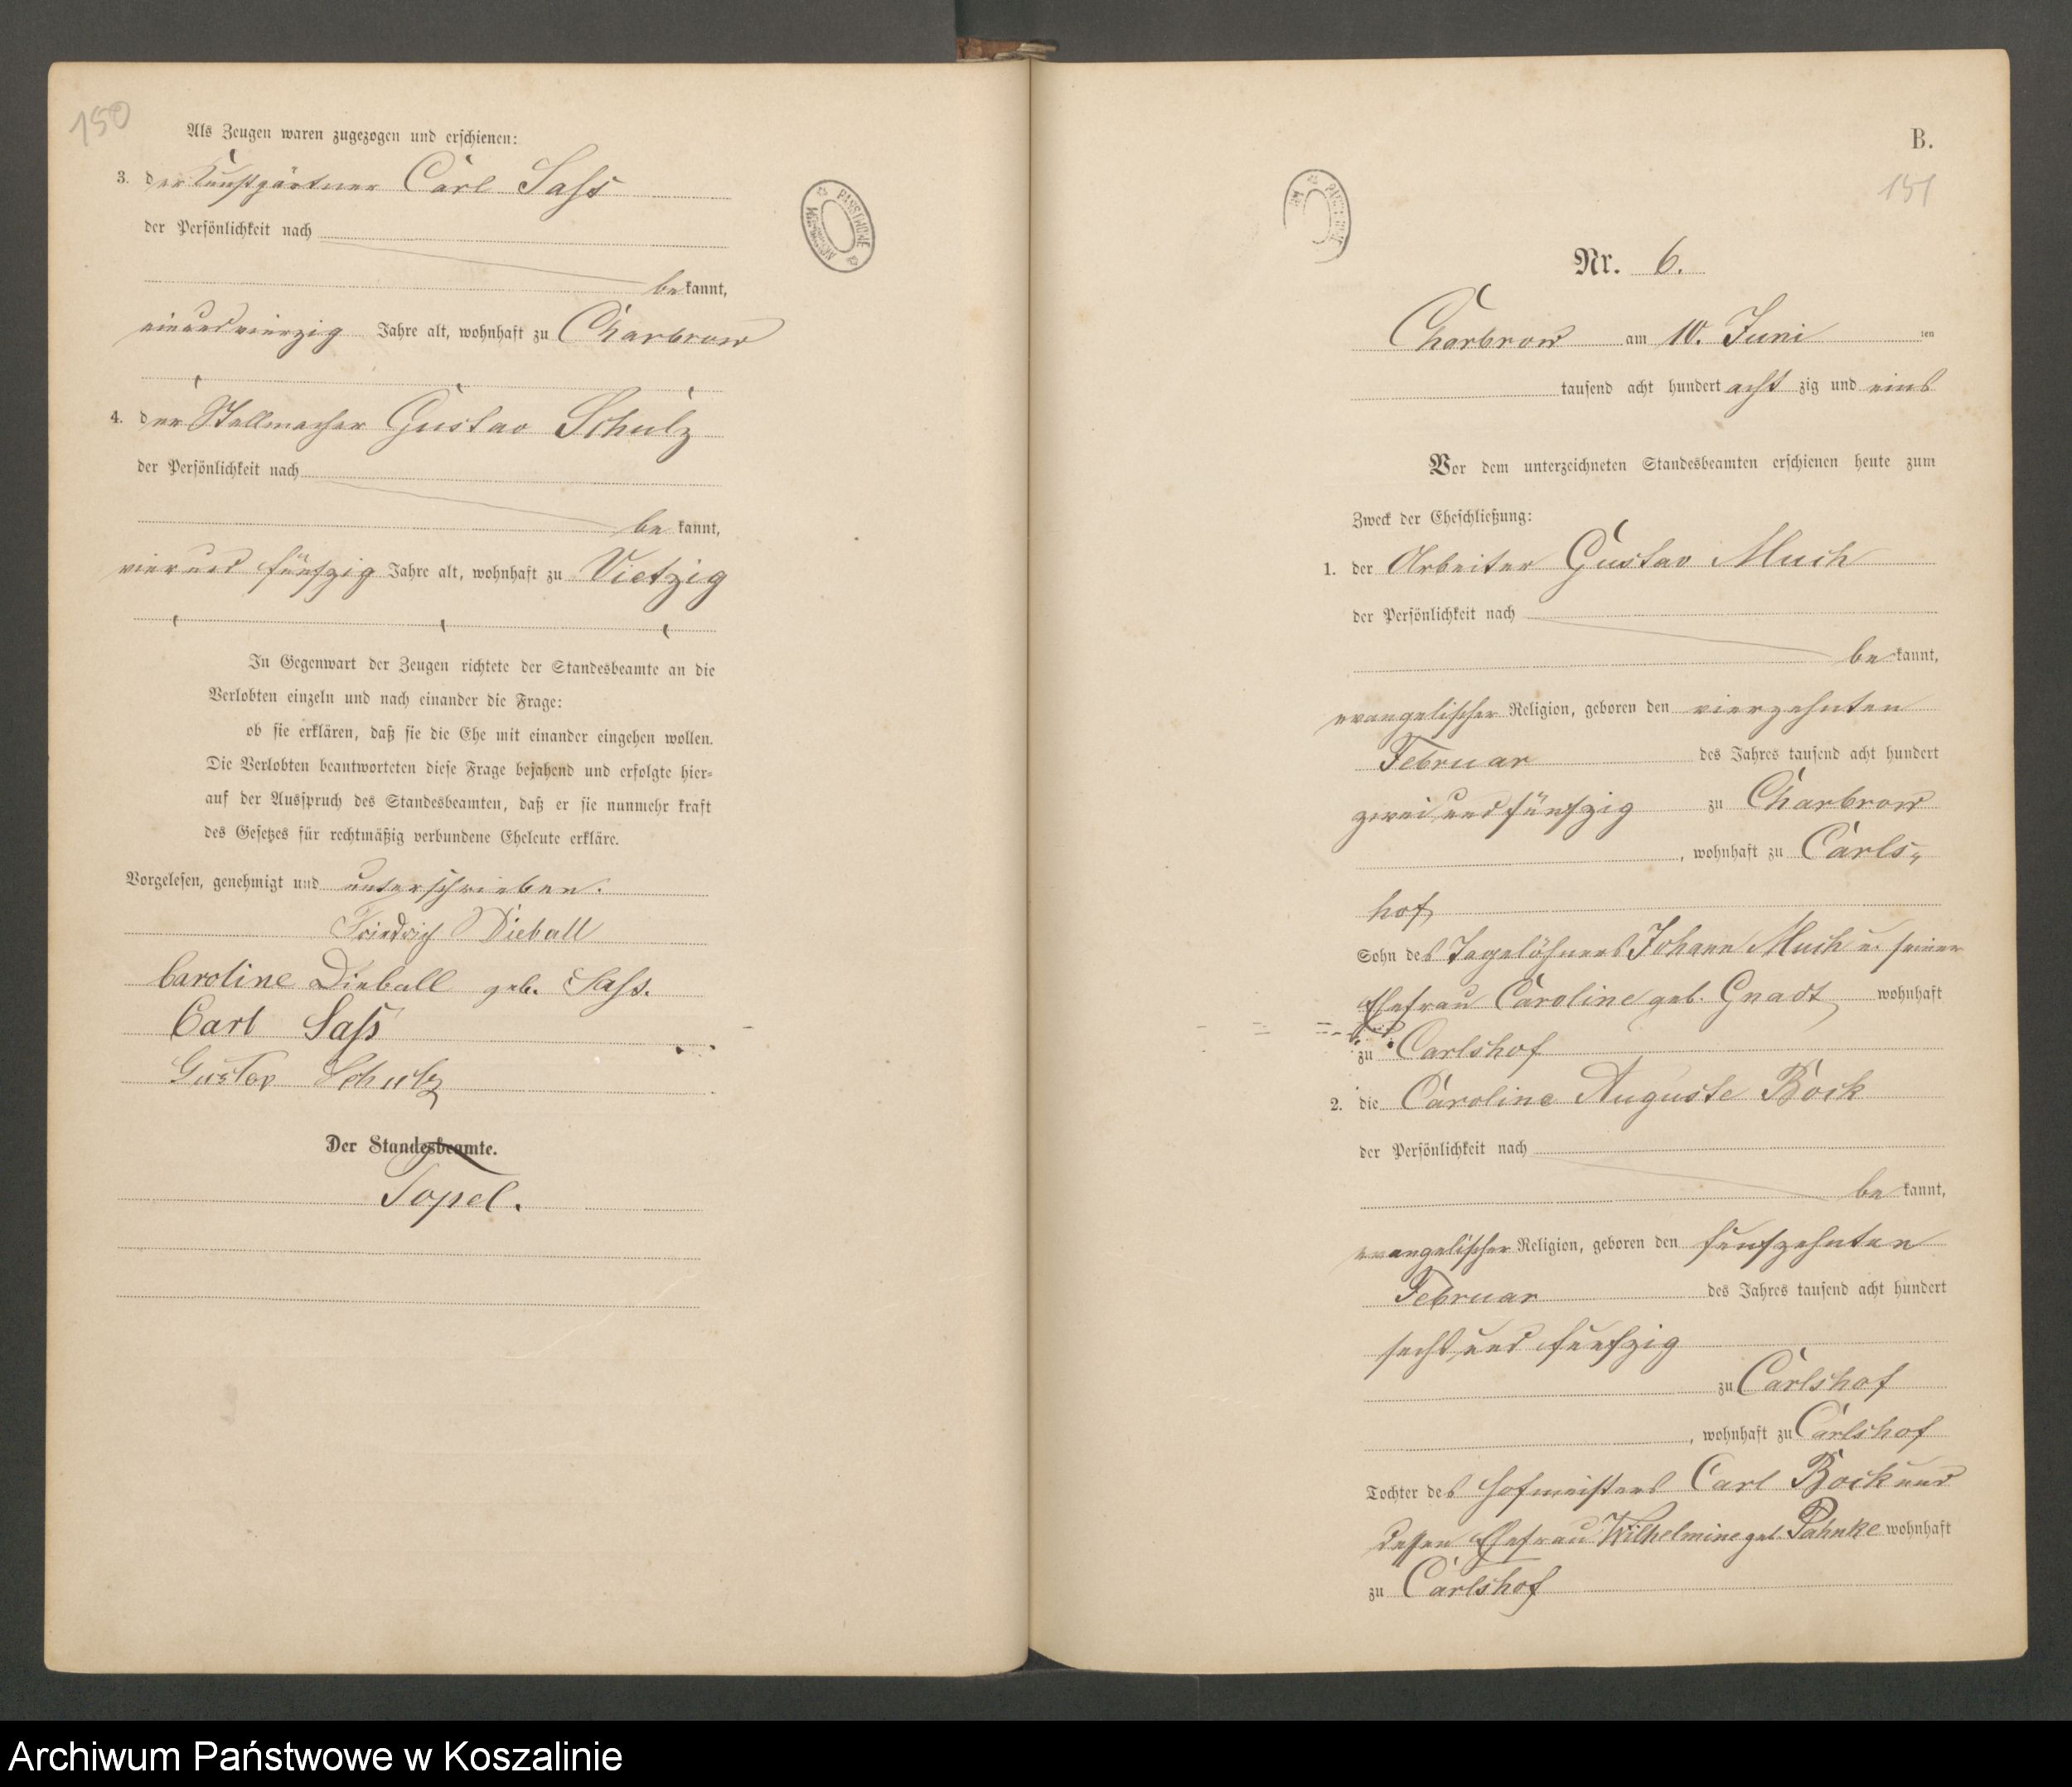 150
Als Zeugen waren zugezogen und erschienen:
3. der Kunstgärtner Carl Sass
der Persönlichkeit nach
be kannt,
einundvierzig Jahre alt, wohnhaft zu Charbrow
4. der Stellmacher Gustav Schulz
der Persönlichkeit nach
be kannt,
vier und fünfzig Jahre alt, wohnhaft zu Vietzig
In Gegenwart der Zeugen richtete der Standesbeamte an die
Verlobten einzeln und nach einander die Frage:
ob sie erklären, daß sie die Ehe mit einander eingehen wollen.
Die Verlobten beantworteten diese Frage bejahend und erfolgte hier=
auf der Ausspruch des Standesbeamten, daß er sie nunmehr kraft
des Gesetzes für rechtmäßig verbundene Eheleute erkläre.
Vorgelesen, genehmigt und unterschrieben.
Friedrich Dieball
Caroline Dieball geb. Sass.
Carl Saß
Gustav Schulz
Der Standesbeamte.
Topel.
B.
151
Nr. 6.
Charbrow am 10. Juni ten
tausend acht hundert acht zig und eins
Vor dem unterzeichneten Standesbeamten erschienen heute zum
Zweck der Eheschließung:
1. der Arbeiter Gustav Much
der Persönlichkeit nach
be kannt,
evangelischer Religion, geboren den vierzehnten
Februar des Jahres tausend acht hundert
zwei und fünfzig zu Charbrow
, wohnhaft zu Carls„
hof,
Sohn des Tagelöhners Johann Much u. seiner
Ehefrau Caroline geb. Gnadt, wohnhaft
zu Carlshof
2. die Caroline Auguste Bock
der Persönlichkeit nach
be kannt,
evangelischer Religion, geboren den funfzehnten
Februar des Jahres tausend acht hundert
sechs und funfzig
zu Carlshof
, wohnhaft zu Carlshof
Tochter des Hofmeisters Carl Bock und
dessen Ehefrau Wilhelmine geb. Pahnke wohnhaft
zu Carlshof
Archiwum Państwowe w Koszalinie